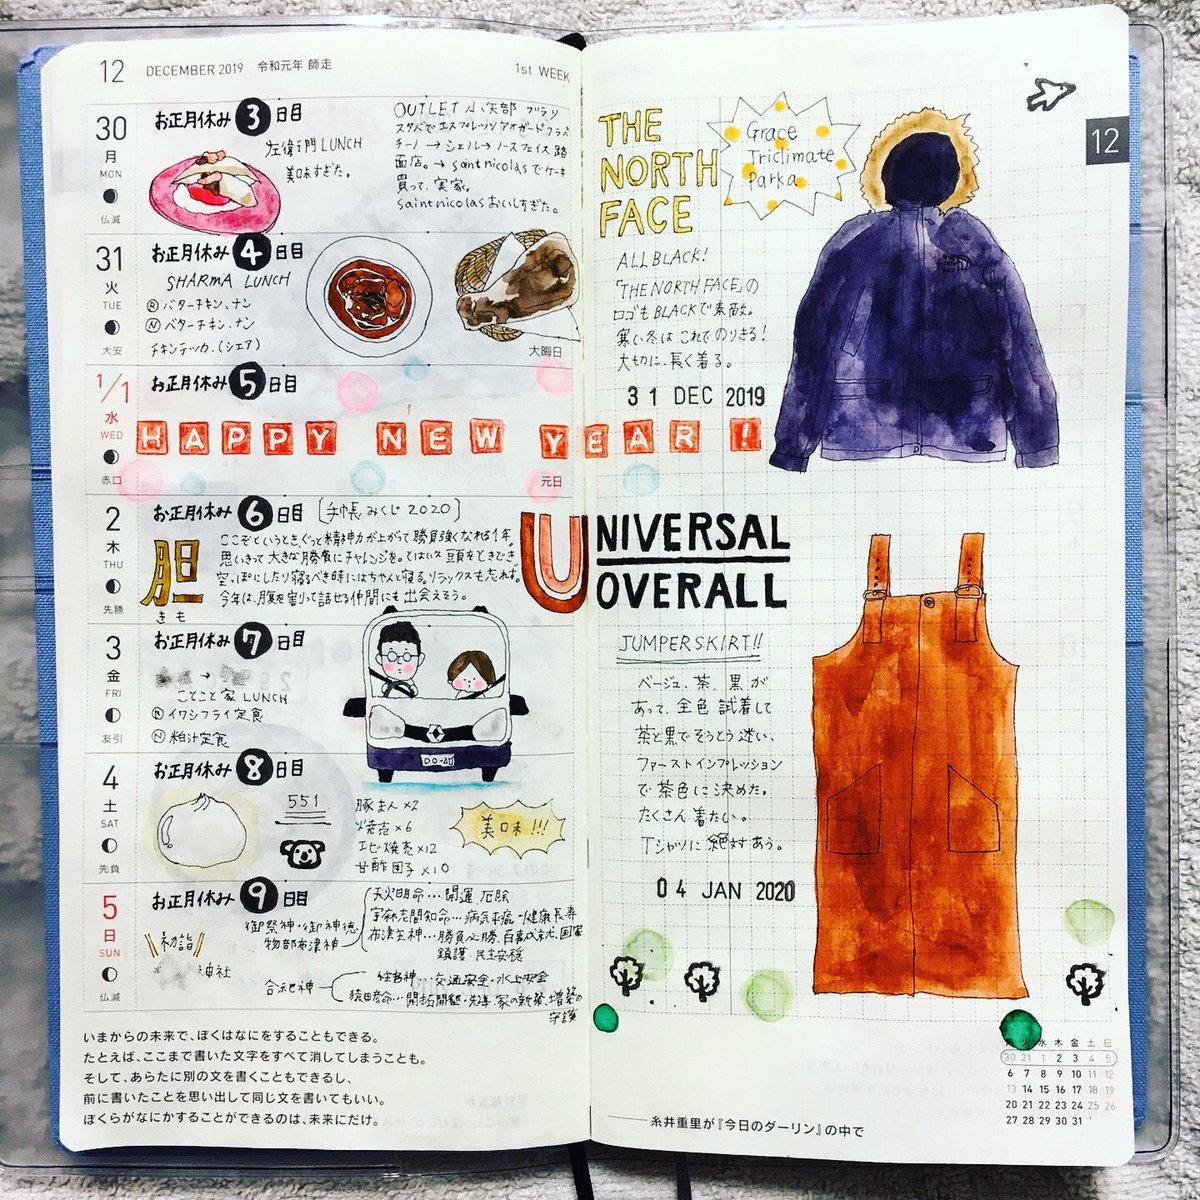 12 DECEMBER 2019 令和元年 師走 1st WEEK
30 月 MON 仏滅
お正月休み 3 日目
左衛門 LUNCH
美味すぎた。
OUTLET 小矢部 ブラリ
スタバでエスプレッソアフォガードフラペ
チーノ → シェル → ノースフェイス路
面店。→ saint nicolasでケーキ
買って、実家。
saint nicolasおいしすぎた。
31 火 TUE 大安
お正月休み 4 日目
SHARMA LUNCH
Ⓡ バターチキン、ナン
Ⓝ バターチキン、ナン
チキンティッカ.(シェア)
大晦日
1/1 水 WED 赤口
お正月休み 5 日目
HAPPY NEW YEAR!
元日
2 木 THU 先勝
お正月休み 6 日目 [手帳みくじ 2020]
胆
きも
ここぞというとき、ぐっと精神力が上がって勝負強くなれる1年。
思いきって大きな勝負にチャレンジを。とはいえ頭をときどき
空っぽにしたり寝るべき時にはちゃんと寝る。リラックスも忘れず。
今年は、腹を割って話せる仲間にも出会えそう。
3 金 FRI 友引
お正月休み 7 日目
→
ことこと家 LUNCH
Ⓝ イワシフライ定食
Ⓝ 粕汁定食
00-40
4 土 SAT 先負
お正月休み 8 日目
551
豚まん ×2
焼売 ×6
エビ焼売 ×12
甘酢団子 ×10
美味!!!
5 日 SUN 仏滅
お正月休み 9 日目
初詣
神社
御祭神・御神徳
物部布津神
天火明命…開運 厄除
宇麻志間知命…病気平癒・健康長寿
布津主神…勝負必勝、百事成就、国家
鎮護 民生安穏
合祀神
住吉神…交通安全・水上安全
猿田彦命…開拓開墾・先導、家の新築、増築の
守護
いまからの未来で、ぼくはなにをすることもできる。
たとえば、ここまで書いた文字をすべて消してしまうことも。
そして、あらたに別の文を書くこともできるし、
前に書いたことを思い出して同じ文を書いてもいい。
ぼくらがなにかすることができるのは、未来にだけ。
12
THE
NORTH
FACE
Grace
Triclimate
Parka
ALL BLACK!
「THE NORTH FACE」の
ロゴもBLACKで素敵。
寒い冬はこれでのりきる!
大切に、長く着る。
31 DEC 2019
UNIVERSAL
OVERALL
JUMPER SKIRT!!
ベージュ、茶、黒が
あって、全色試着して
茶と黒でそうとう迷い、
ファーストインプレッション
で茶色に決めた。
たくさん着たい。
Tシャツに絶対あう。
04 JAN 2020
月 火 水 木 金 土 日
30 31 1 2 3 4 5
6 7 8 9 10 11 12
13 14 15 16 17 18 19
20 21 22 23 24 25 26
27 28 29 30 31
——糸井重里が『今日のダーリン』の中で